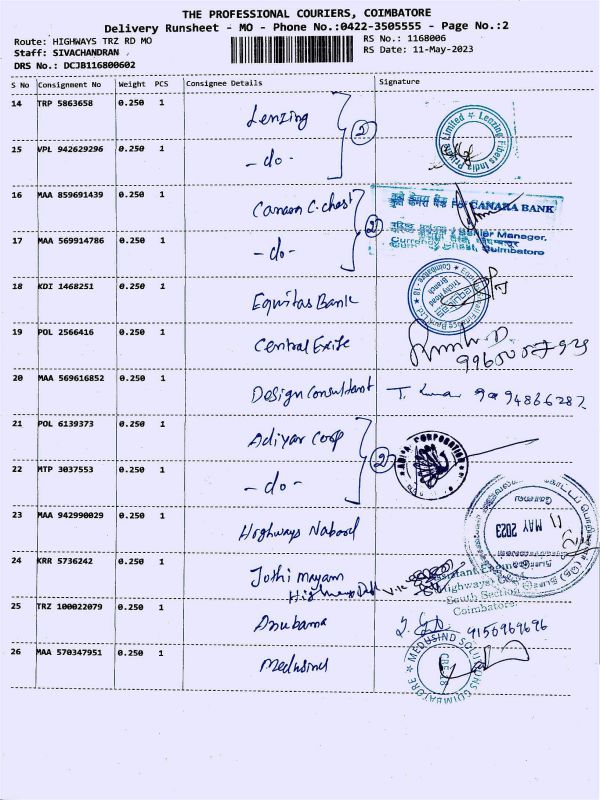 THE PROFESSIONAL COURIERS, COIMBATORE
Delivery Runsheet - MO - Phone No.:0422-3505555 - Page No.:2
Route: HIGHWAYS TRZ RD MO
RS No.: 1168006
Staff: SIVACHANDRAN
RS Date: 11-May-2023
DRS No.: DCJB116800602
S No Consignment No Weight PCS Consignee Details Signature
14 TRP 5863658 0.250 1 Lenzing
2
Lenzing Fibers India Private Limited
15 VPL 942629296 0.250 1 - do -
16 MAA 859691439 0.250 1 Canara C. Chest
2
CANARA BANK
Senior Manager,
17 MAA 569914786 0.250 1 - do -
Coimbatore
18 KDI 1468251 0.250 1 Equitas Bank
Finance Bank Ltd
Trichy Road
Branch
Coimbatore - 18
19 POL 2566416 0.250 1 Central Exise
20 MAA 569616852 0.250 1 Design Consultant
21 POL 6139373 0.250 1 Adiyar Coop
2
CORPORATION
22 MTP 3037553 0.250 1 - do -
23 MAA 942990029 0.250 1 Highways Nabard
11 MAY 2023
24 KRR 5736242 0.250 1 Jothi Mayam
Assistant Engineer
(Highways)
South Section
Coimbatore
25 TRZ 100022079 0.250 1 Anubama
9156969696
26 MAA 570347951 0.250 1 Medusind
MEDUSIND SOLUTIONS
COIMBATORE